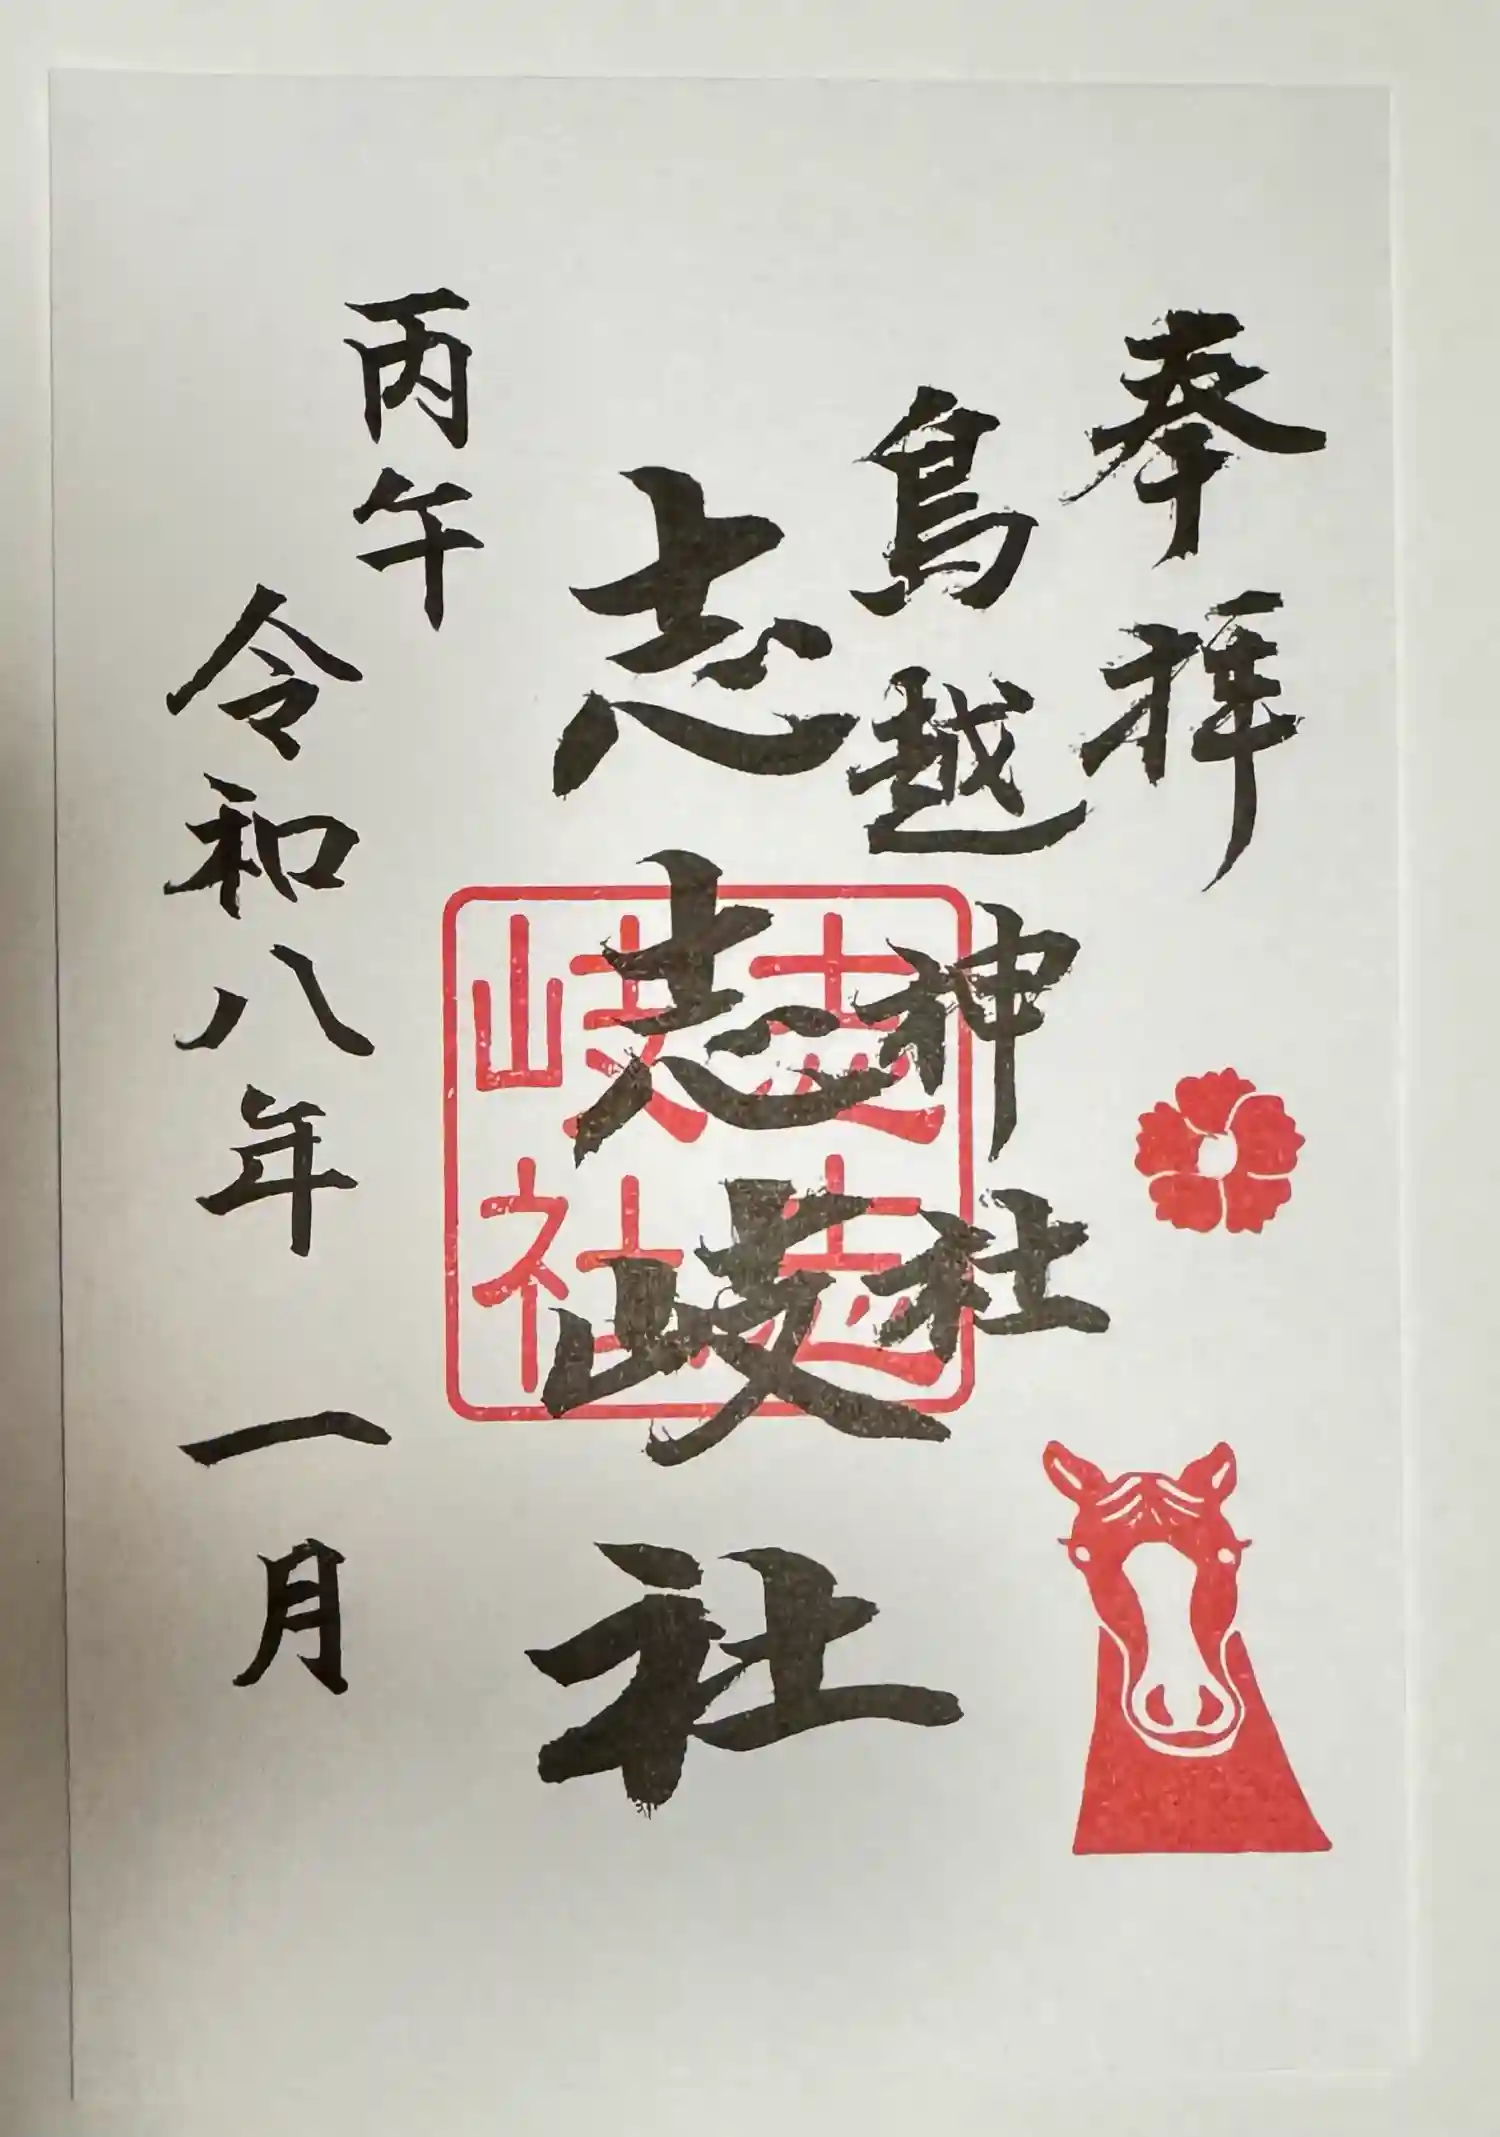 奉拝
鳥越神社
志志岐社
志志岐社
丙午
令和八年一月